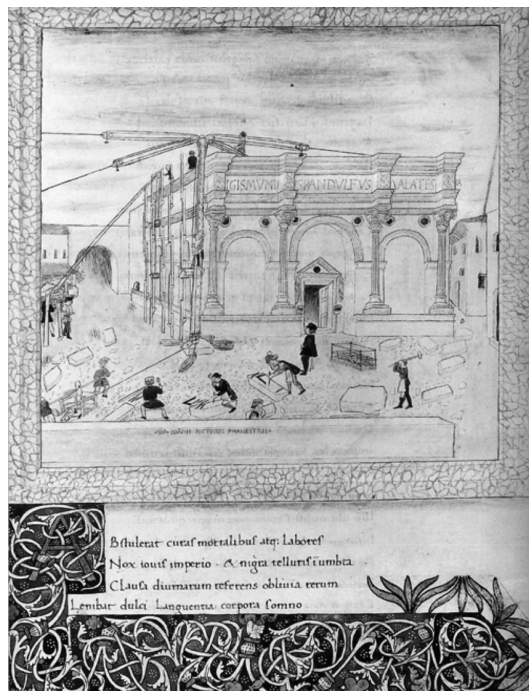 SIGISMVNDVS PANDVLFVS MALATES
IOANNIS PICTORIS PHANESTRIS
Abstulerat curas mortalibus atq; Labores
Nox iouis imperio · & nigra telluris i umbra
Clausa diurnarum referens oblivia rerum
Lenibat dulci Languentia corpora somno